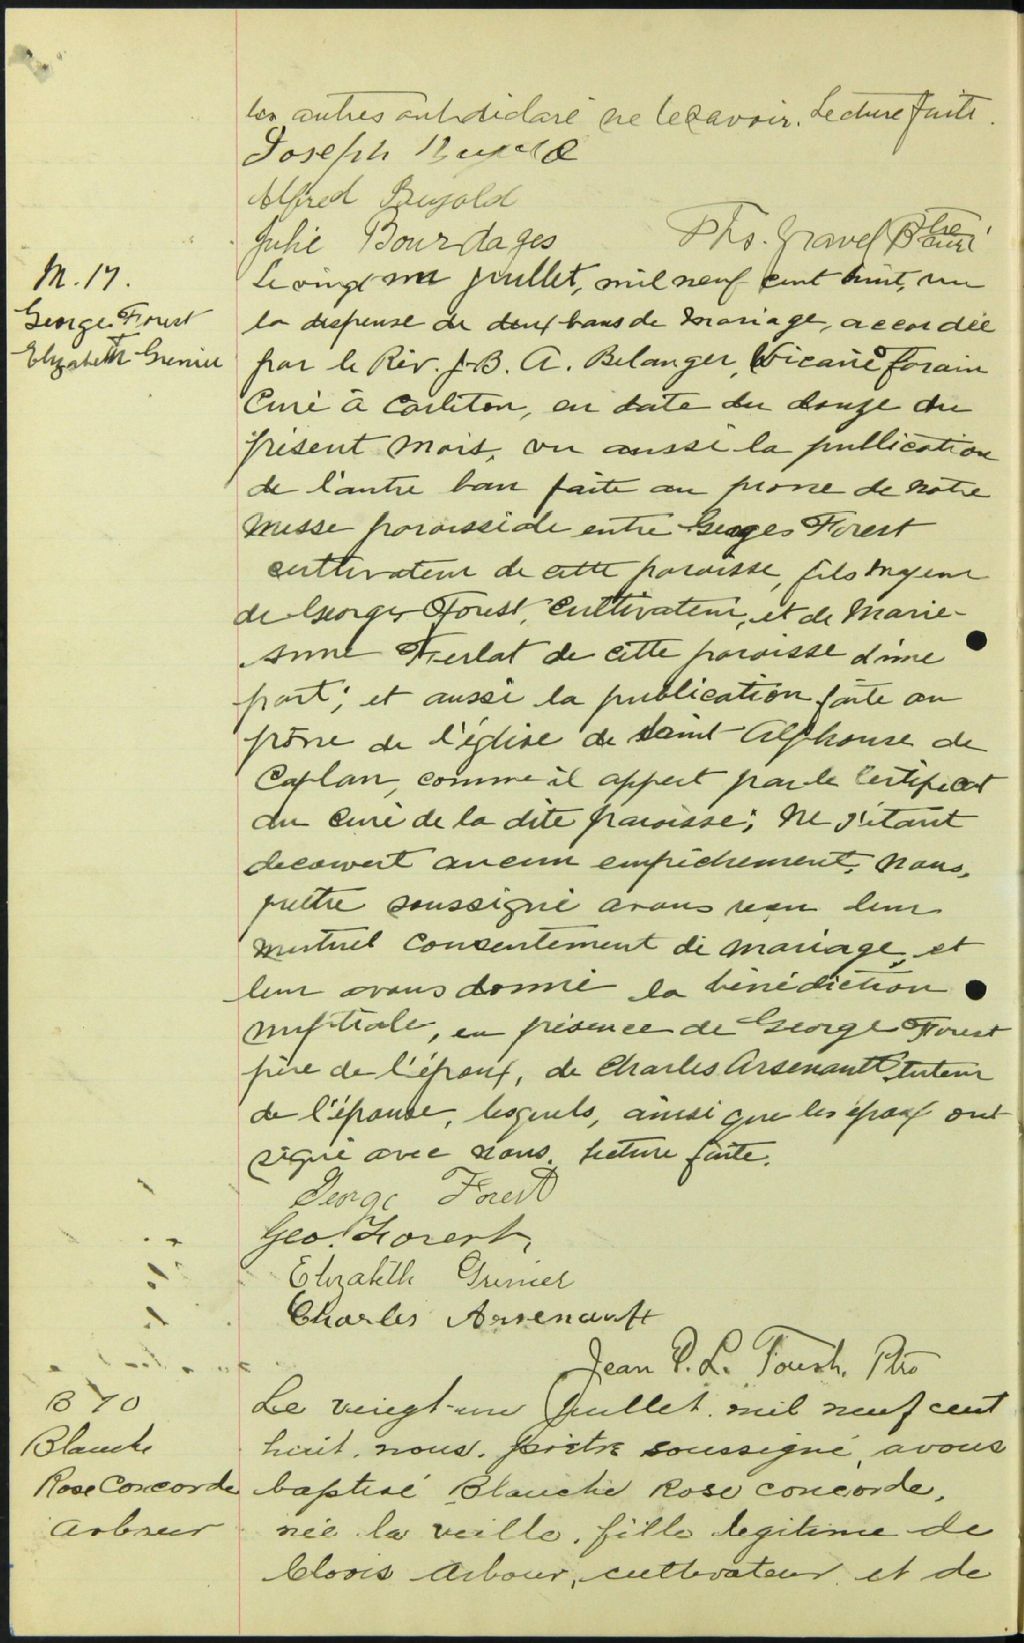 les autres ont déclaré ne le savoir. Lecture faite.
Joseph
Alfred Bujold
Julie Bourdages
Ths. Gravel Ptre Curé
M. 17.
George Forest
+
Elizabeth Grenier
Le vingt un juillet, mil neuf cent huit, vu
la dispense de deux bans de mariage, accordée
par le Rév. J.B. A. Belanger, Vicaire forain
Curé à Carleton, en date du douze du
présent mois, vu aussi la publication
de l'autre ban faite au prone de notre
messe paroissiale entre Georges Forest
cultivateur de cette paroisse, fils majeur
de George Forest, cultivateur, et de Marie-
Anne Ferlat de cette paroisse d'une
part; et aussi la publication faite au
prône de l'église de Saint Alphonse de
Caplan, comme il appert par le certificat
du curé de la dite paroisse; ne s'étant
decouvert aucun empêchement, nous,
prêtre soussigné avons reçu leur
mutuel consentement de mariage, et
leur avons donné la bénédiction
nuptiale, en présence de George Forest
père de l'époux, de Charles Arsenault tuteur
de l'épouse, lesquels, ainsi que les époux ont
signé avec nous. Lecture faite.
George Forest
Geo. Forest,
Elizabeth Grenier
Charles Arsenault
Jean P. L. Ptre
B 70
Blanche
Rose Concorde
Arbour
Le vingt-un Juillet mil neuf cent
huit, nous, prêtre soussigné, avons
baptisé Blanche Rose concorde,
née la veille, fille legitime de
Clovis Arbour, cultivateur et de